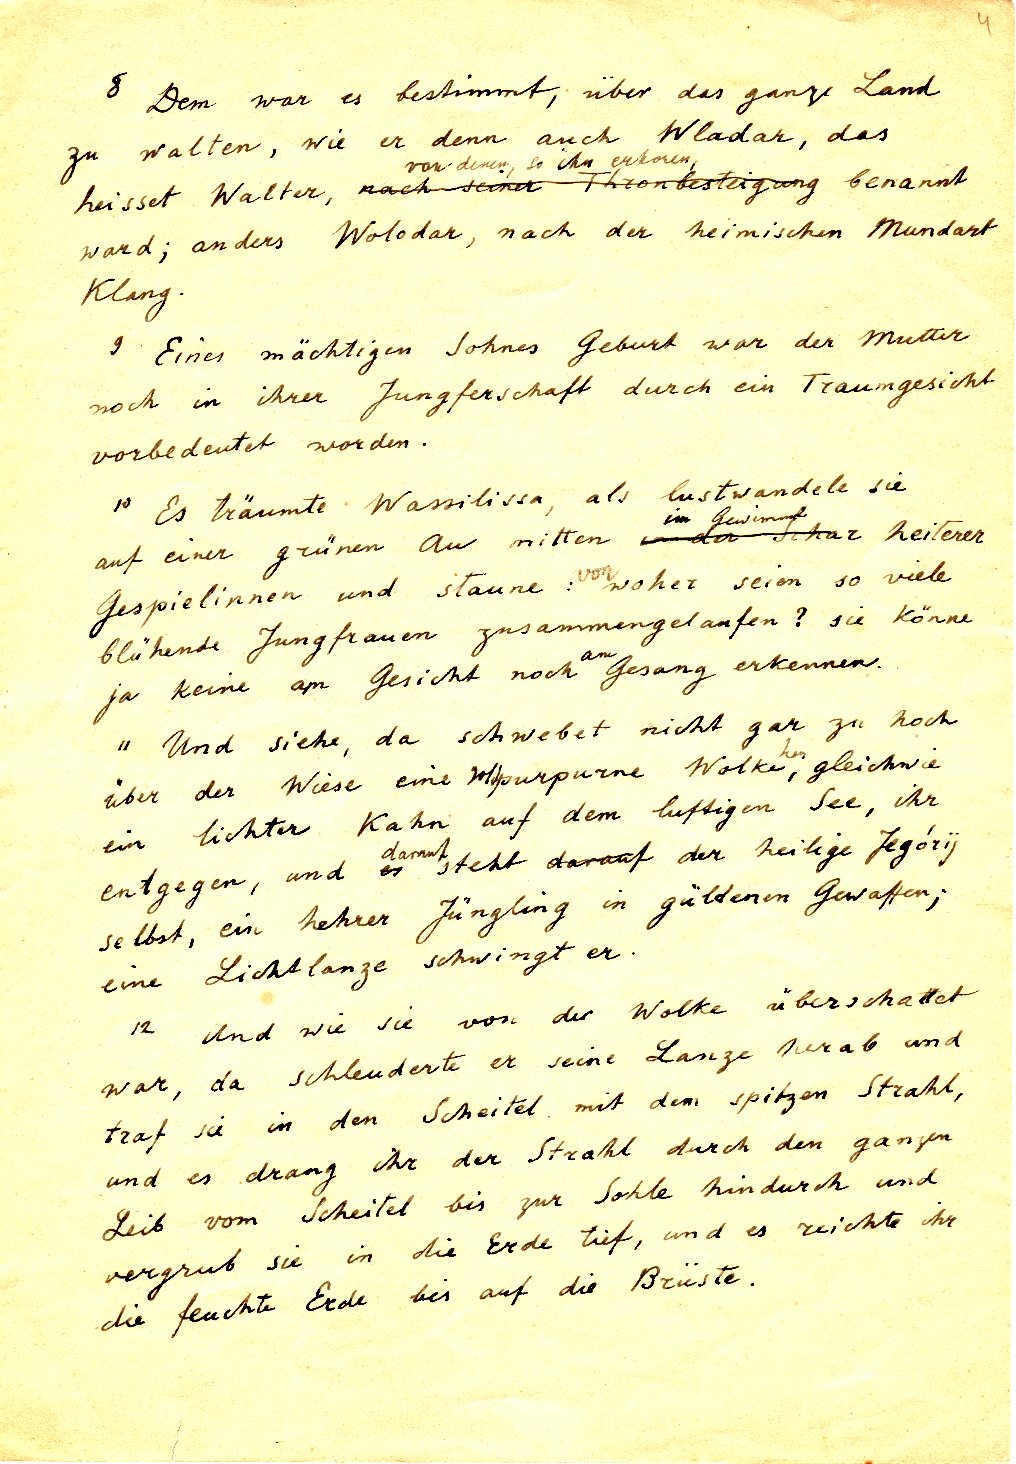 4
8 Dem war es bestimmt, über das ganze Land
zu walten, wie er denn auch Wladar, das
von denen, so ihn erkoren,
heisset Walter, nach seiner Thronbesteigung benannt
ward; anders Wolodar, nach der heimischen Mundart
Klang.
9 Eines mächtigen Sohnes Geburt war der Mutter
noch in ihrer Jungferschaft durch ein Traumgesicht
vorbedeutet worden.
10 Es träumte Wassilissa, als lustwandele sie
im Gewimmel
auf einer grünen Au mitten in der Schar heiterer
von
Gespielinnen und staune: woher seien so viele
blühende Jungfrauen zusammengelaufen? sie könne
am
ja keine am Gesicht noch Gesang erkennen.
11 Und siehe, da schwebet nicht gar zu hoch
her
über der Wiese eine purpurne Wolke, gleichwie
ein lichter Kahn auf dem luftigen See, ihr
darauf
entgegen, und es steht darauf der heilige Jegórij
selbst, ein hehrer Jüngling in güldenen Gewaffen;
eine Lichtlanze schwingt er.
12 Und wie sie von der Wolke überschattet
war, da schleuderte er seine Lanze herab und
traf sie in den Scheitel mit dem spitzen Strahl,
und es drang ihr der Strahl durch den ganzen
Leib vom Scheitel bis zur Sohle hindurch und
vergrub sie in die Erde tief, und es reichte ihr
die feuchte Erde bis auf die Brüste.